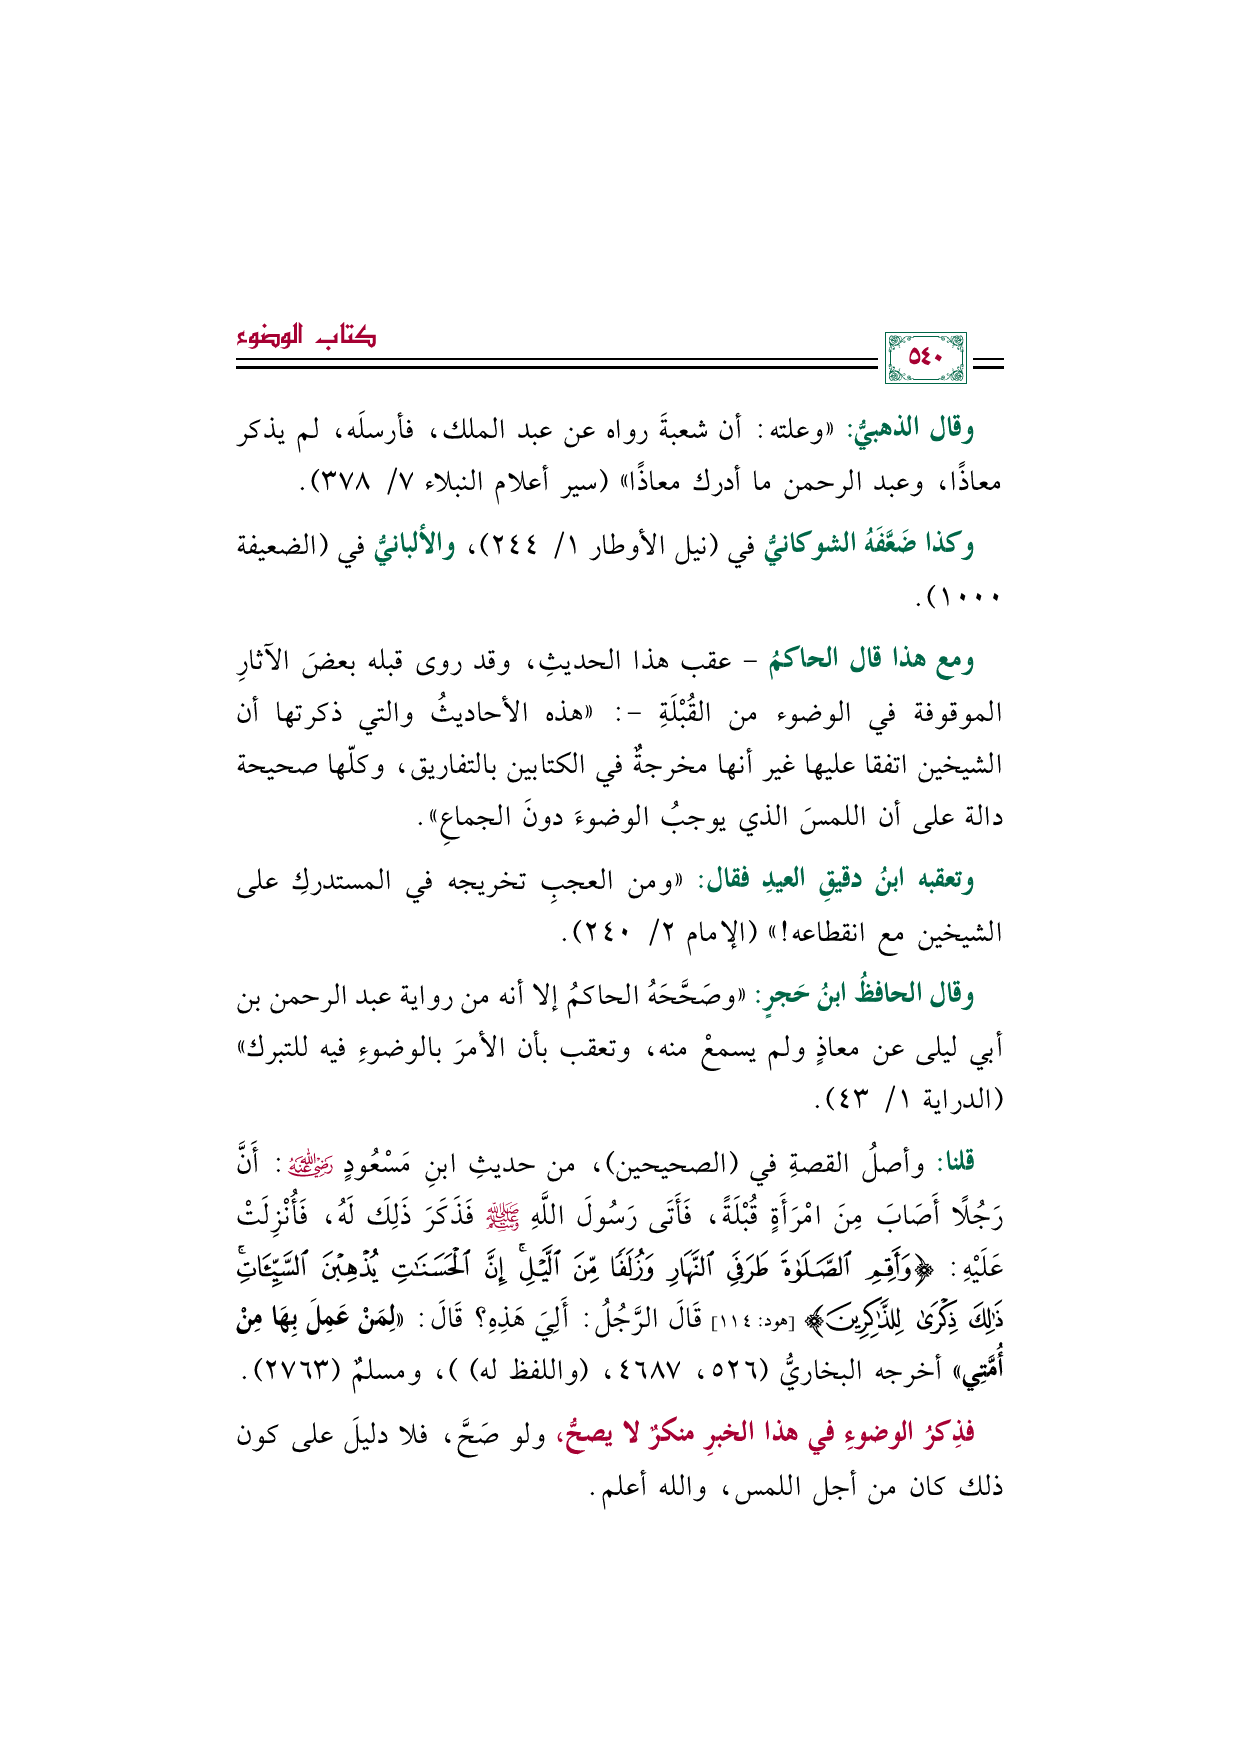 كتاب الوضوء
٥٤٠
وقال الذهبيُّ: «وعلته: أن شعبةَ رواه عن عبد الملك، فأرسلَه، لم يذكر
معاذًا، وعبد الرحمن ما أدرك معاذًا» (سير أعلام النبلاء ٧/ ٣٧٨).
وكذا ضَعَّفَهُ الشوكانيُّ في (نيل الأوطار ١/ ٢٤٤)، والألبانيُّ في (الضعيفة
١٠٠٠).
ومع هذا قال الحاكمُ – عقب هذا الحديثِ، وقد روى قبله بعضَ الآثارِ
الموقوفة في الوضوء من القُبْلَةِ –: «هذه الأحاديثُ والتي ذكرتها أن
الشيخين اتفقا عليها غير أنها مخرجةٌ في الكتابين بالتفاريق، وكلّها صحيحة
دالة على أن اللمسَ الذي يوجبُ الوضوءَ دونَ الجماعِ».
وتعقبه ابنُ دقيقِ العيدِ فقال: «ومن العجبِ تخريجه في المستدركِ على
الشيخين مع انقطاعه!» (الإمام ٢/ ٢٤٠).
وقال الحافظُ ابنُ حَجرٍ: «وصَحَّحَهُ الحاكمُ إلا أنه من رواية عبد الرحمن بن
أبي ليلى عن معاذٍ ولم يسمعْ منه، وتعقب بأن الأمرَ بالوضوءِ فيه للتبرك»
(الدراية ١/ ٤٣).
قلنا: وأصلُ القصةِ في (الصحيحين)، من حديثِ ابنِ مَسْعُودٍ رضي الله عنه: أَنَّ
رَجُلًا أَصَابَ مِنَ امْرَأَةٍ قُبْلَةً، فَأَتَى رَسُولَ اللَّهِ ﷺ فَذَكَرَ ذَلِكَ لَهُ، فَأُنْزِلَتْ
عَلَيْهِ: ﴿وَأَقِمِ ٱلصَّلَوٰةَ طَرَفَيِ ٱلنَّهَارِ وَزُلَفًا مِّنَ ٱلَّيْلِۚ إِنَّ ٱلْحَسَنَٰتِ يُذْهِبْنَ ٱلسَّيِّـَٔاتِۚ
ذَٰلِكَ ذِكْرَىٰ لِلذَّٰكِرِينَ﴾ [هود: ١١٤] قَالَ الرَّجُلُ: أَلِيَ هَذِهِ؟ قَالَ: «لِمَنْ عَمِلَ بِهَا مِنْ
أُمَّتِي» أخرجه البخاريُّ (٥٢٦، ٤٦٨٧، (واللفظ له) )، ومسلمٌ (٢٧٦٣).
فذِكرُ الوضوءِ في هذا الخبرِ منكرٌ لا يصحُّ، ولو صَحَّ، فلا دليلَ على كون
ذلك كان من أجل اللمس، والله أعلم.